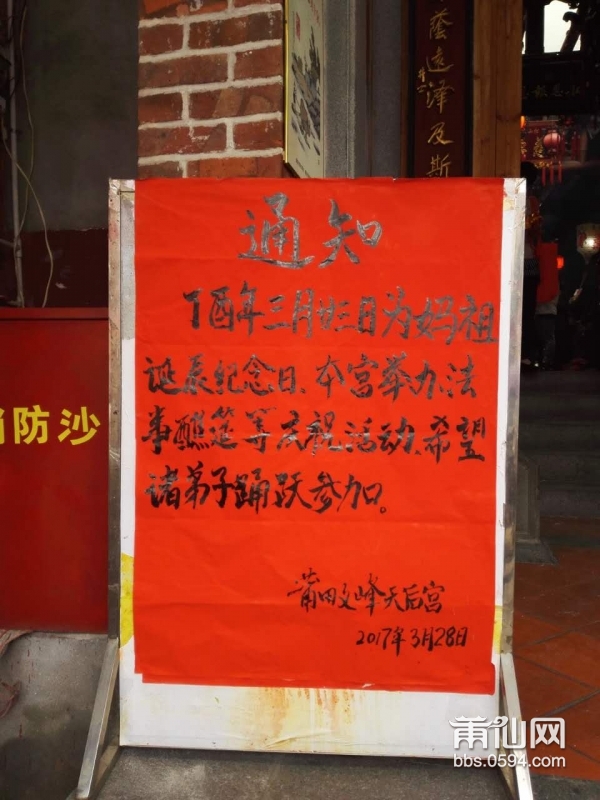 通知
丁酉年三月廿三日为妈祖
诞辰纪念日、本宫举办法
事醮筵等庆祝活动、希望
诸弟子踊跃参加。
莆田文峰天后宫
2017年3月28日
防沙
蔭遠澤及斯
莆仙网
bbs.0594.com